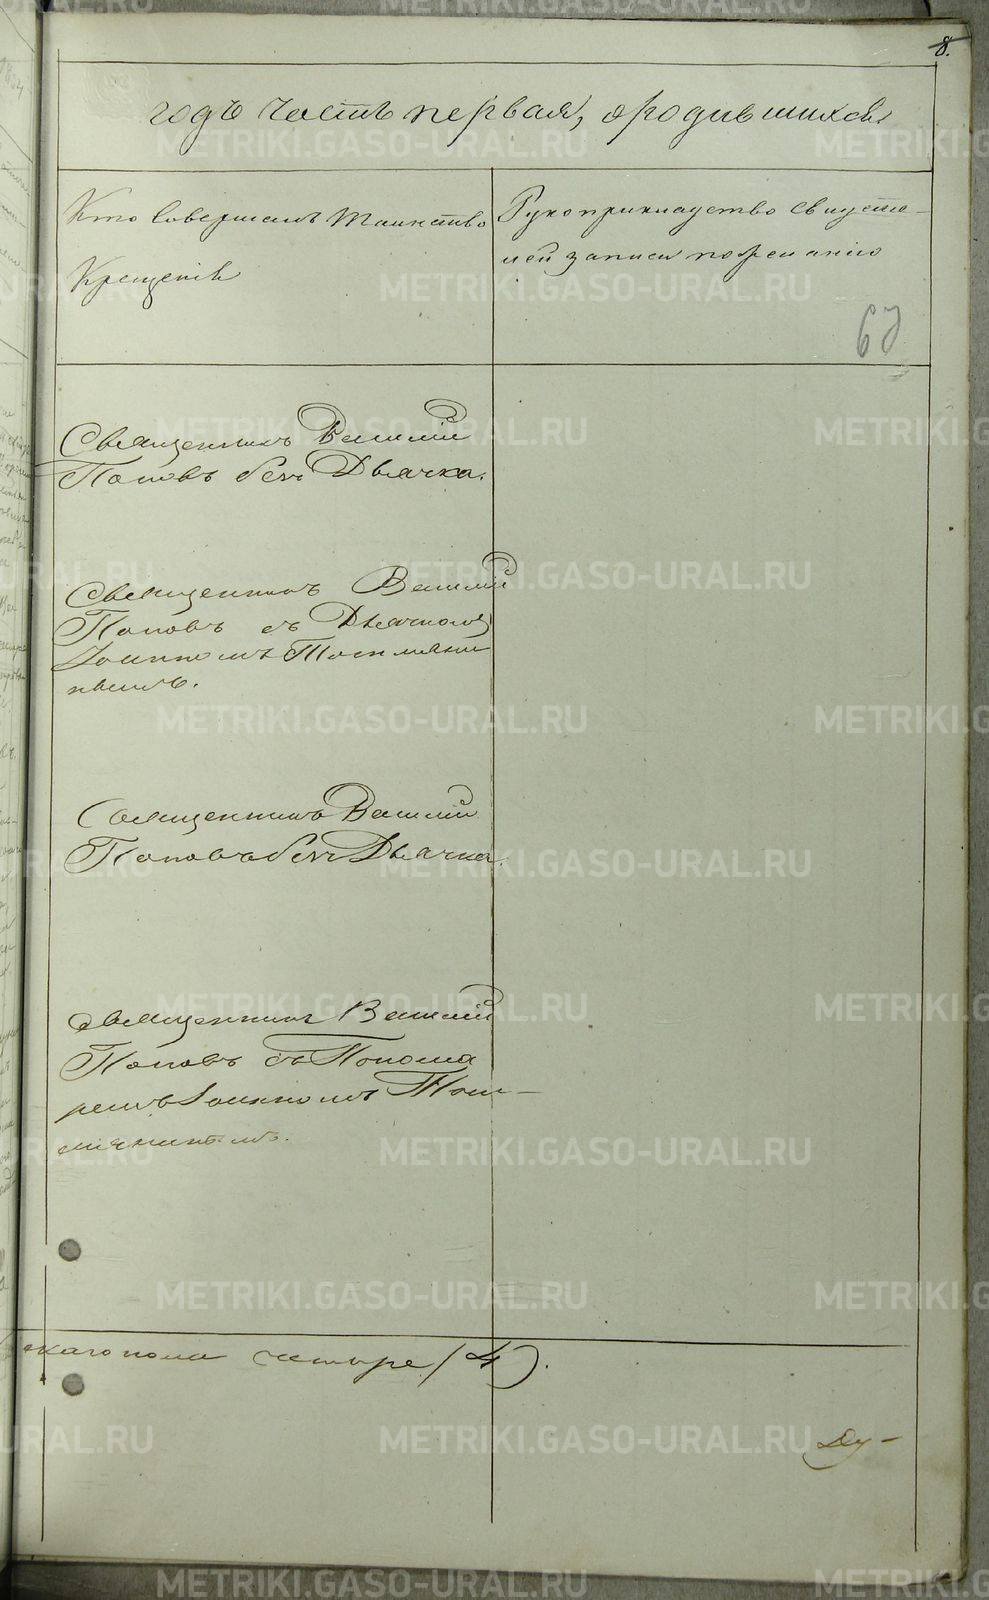 8.
годъ часть первая, о родившихся
Кто совершалъ таинство
Крещенія
Рукоприкладство свидѣте-
лей записи по желанію
Священникъ Василій
Поповъ безъ Дьячка.
Священникъ Василій
Поповъ съ Дьячкомъ
Іоанномъ
Священникъ Василій
Поповъ безъ Дьячка.
Священникъ Василій
Поповъ съ Понома
ремъ Іоанномъ
скаго пола четыре (4).
Ду-
METRIKI.GASO-URAL.RU